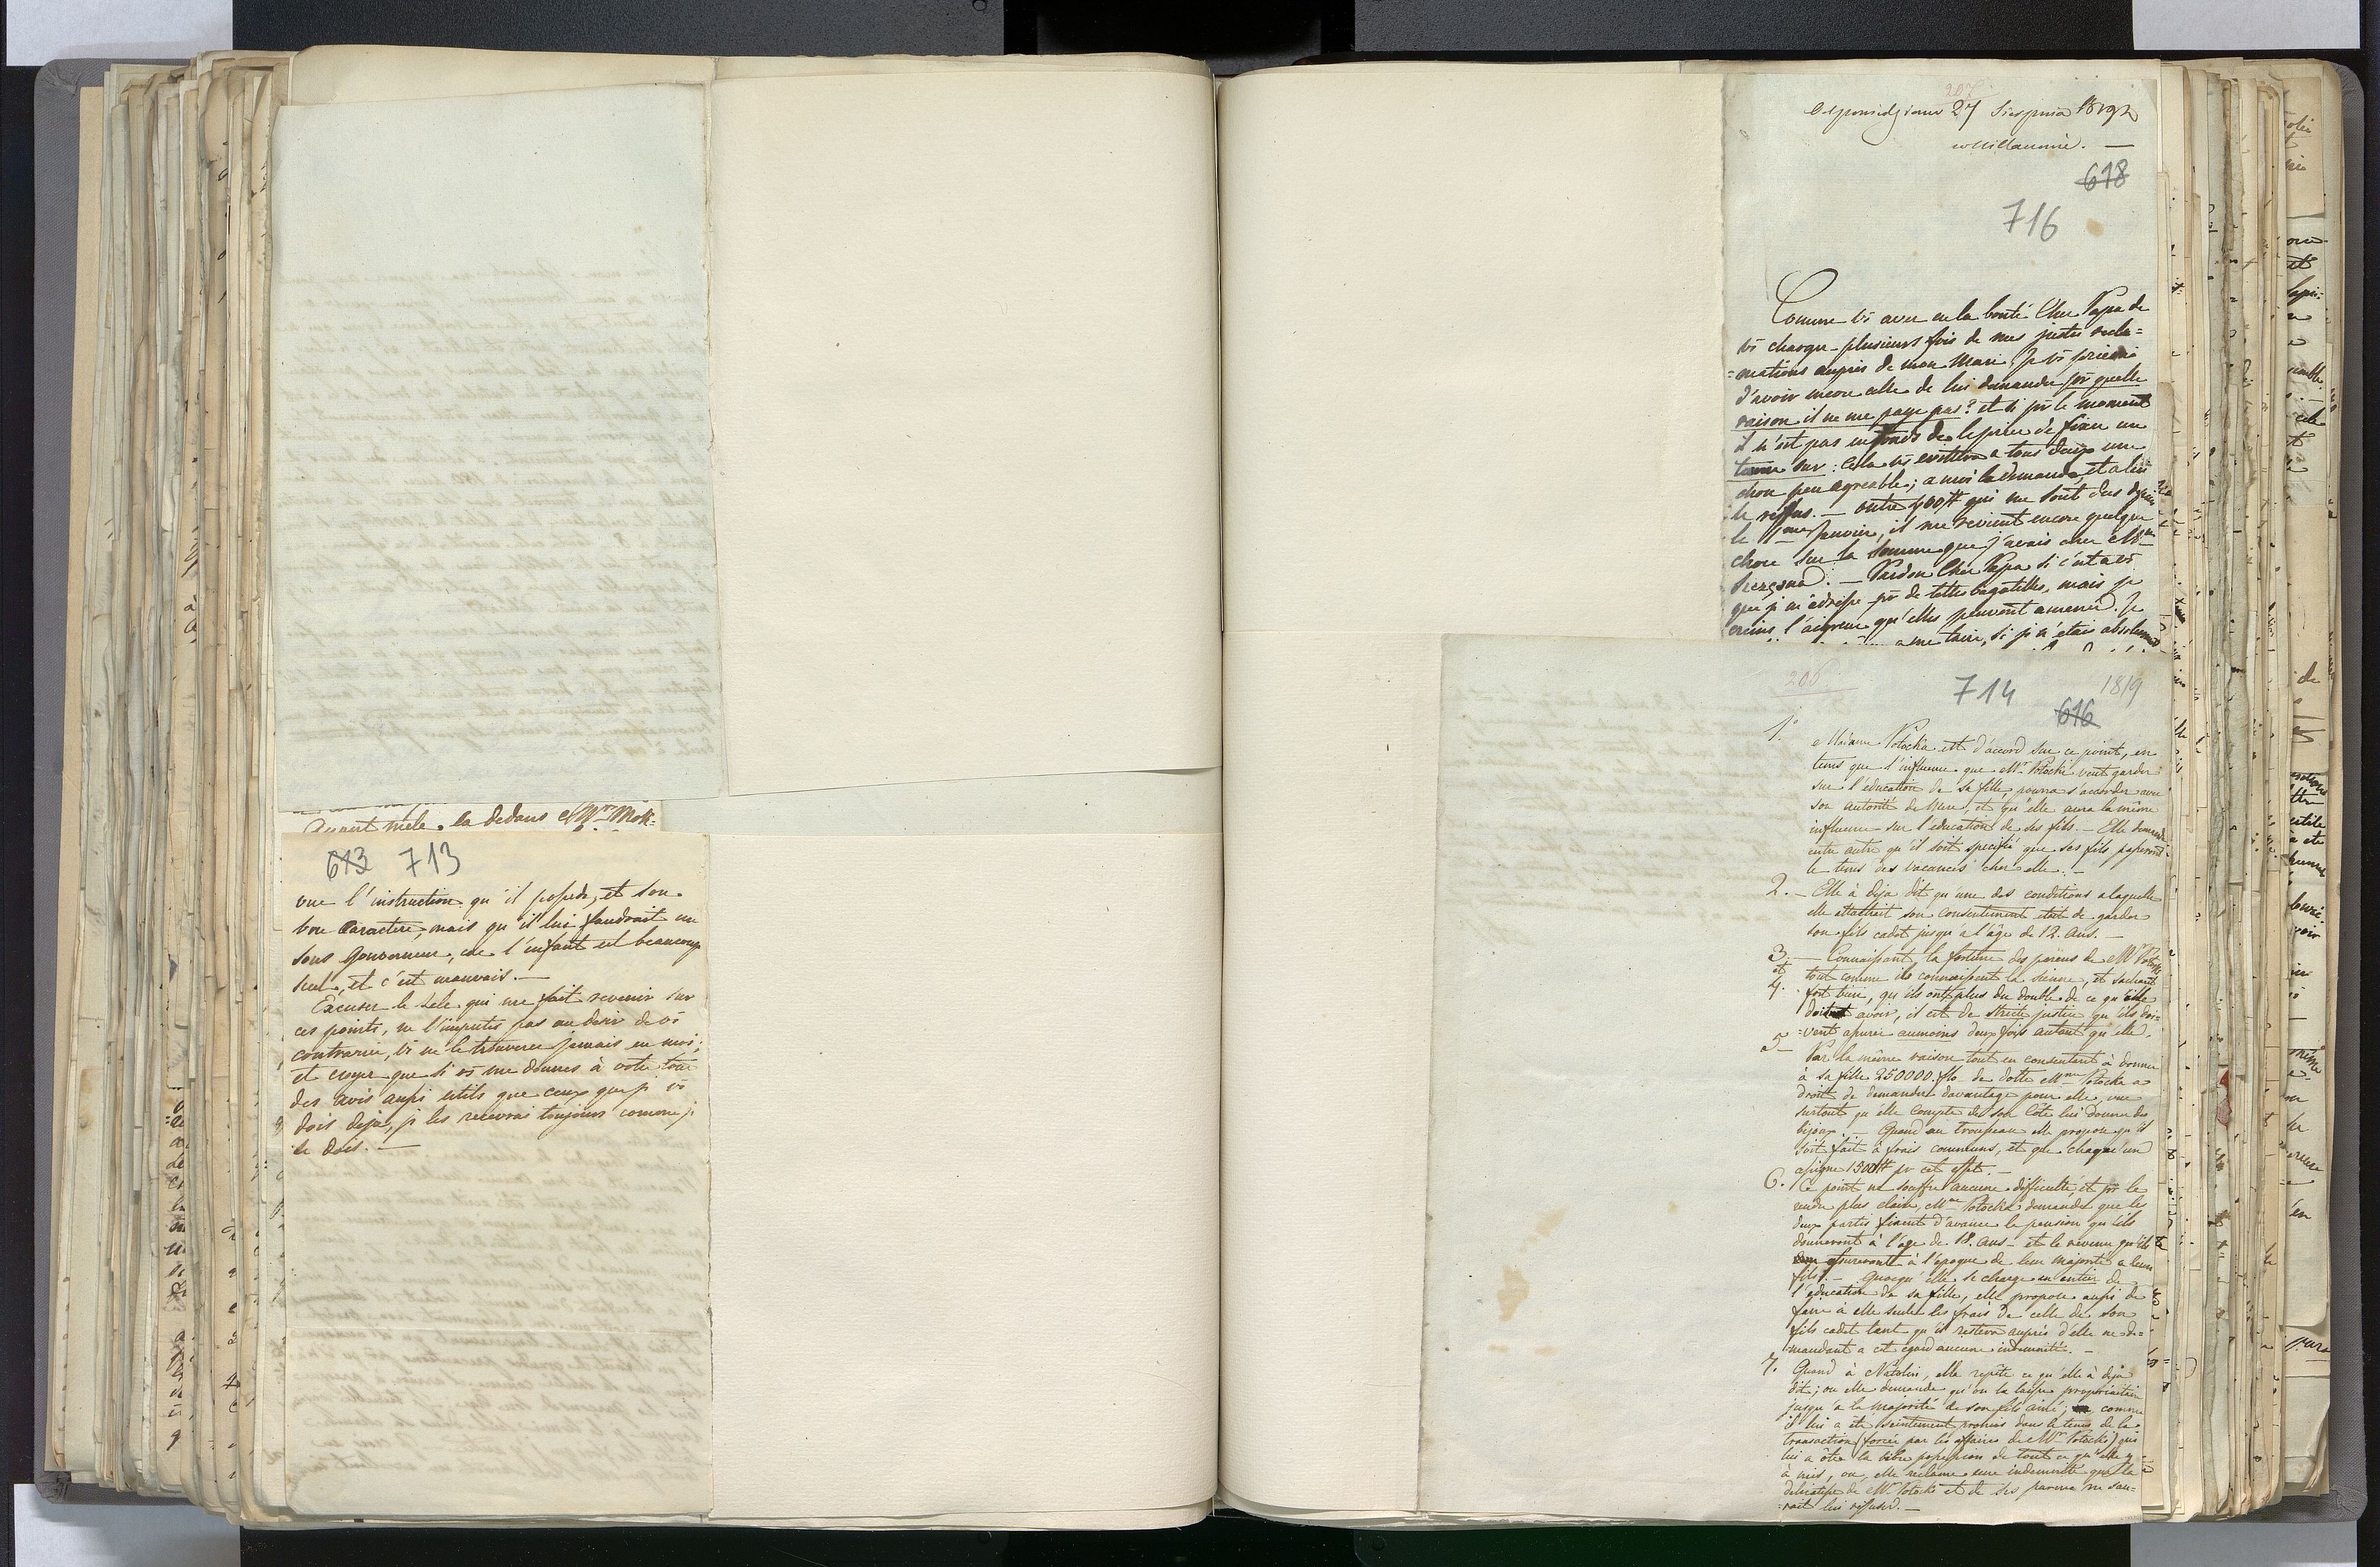 ayant mêlé la dedans Mr Mok-
613 713
vue l'instruction qu'il possede, et son
bon Caractere, mais qu'il lui faudrait un
sous Gouverneur, car l'enfant est beaucoup
seul, et c'est mauvais. —
Excuser le zele qui me fait revenir sur
ces points, ne l'imputés pas au desir de vs
contrarier, vs ne le trouverer jamais en moi;
et croyer que si vs me donner à votre tour
des avis aussi utils que ceux que je vs
dois deja, je les recevrai toujours comme je
le dois. —
207
Odpowiedziano 27 Sierpnia 1819
w Willanowie. —
618
716
Comme vs aver eu la bonté Cher Papa de
vs charger plusieurs fois de mes justes recla=
=mations aupres de mon Mari, Je vs prierai
d'avoir encore celle de lui demander pr quelle
raison il ne me paye pas? et si pr le moment
il n'est pas en fonds de le prier de fixer un
terme sur: Cela vs evitera a tous deux une
chose peu agreable; a moi la demande, et a lui
le refus. — outre 400# qui me sont dus depuis
le 1er Janvier, il me revient encore quelque
chose sur la somme que j'avais cher Mr
Pardon Cher Papa si c'est a vs
que je m'adresse pr de telles bagatelles, mais je
crains l'aigreur qu'elles peuvent amener. Je
a me taire, si je n'etais absolument
206
714 1819
616
1° Madame Potocka est d'accord sur ce point, en
tems que l'influence que Mr Potocki veut garder
sur l'éducation de sa fille pourra s'accorder avec
son autorité de Mere, et qu'elle aura la même
influence sur l'education de ses fils. — Elle demande
entre autre qu'il soit specifié que ses fils passeront
le tems des vacances cher elle. —
2. — Elle à deja dit qu'une des conditions a laquelle
elle attachait son consentement etait de garder
son fils cadet jusqu'a l'âge de 12. ans. —
3. — Connaissant la fortune des parens de Mr Potocki
et tout comme ils connaissent la sienne, et sachant
4. fort bien, qu'ils ont plus du double de ce qu'elle
doit avoir, il est de stricte justice qu'ils doi=
=vent assurer aumoins deux fois autant qu'elle.
5 — Par la même raison tout en consentant à donner
à sa fille 250000. flo de dotte Mme Potocka a
droit de demander davantage pour elle, vue
surtout qu'elle Compte de son Côté lui donner des
bijoux. — Quand au trousseau elle propose qu'il
soit fait à frais communs, et que chaqu'un
assigne 1500# pr cet effet. —
6. Ce point ne souffre aucune difficulté, et pr le
rendre plus clair, Mme Potocka demande que les
deux partis fixent d'avance la pension qu'ils
donneront à l'age de 18. ans — et le revenu qu'ils
assureront à l'époque de leur majorité a leurs
fils. — Quoiqu'elle se charge en entier de
l'education de sa fille, elle propose aussi de
faire à elle seule les frais de celle de son
fils cadet tant qu'il restera aupres d'elle ne de=
=mandant a cet egard aucune indemnité. —
7. Quand à Natolin, elle repête ce qu'elle à deja
dit; ou elle demande qu'on la laisse propriaitaire
jusqu'a la majorité de son fils ainé, comme
il lui a été saintement promis dans le tems de la
transaction (forcée par les affaires de Mr Potocki) qui
lui a ôté la libre possession de tout ce qu'elle y
à mis, ou, elle reclame une indemnité que la
delicatesse de Mr Potocki et de ses parens ne sau=
=rait lui refuser. —